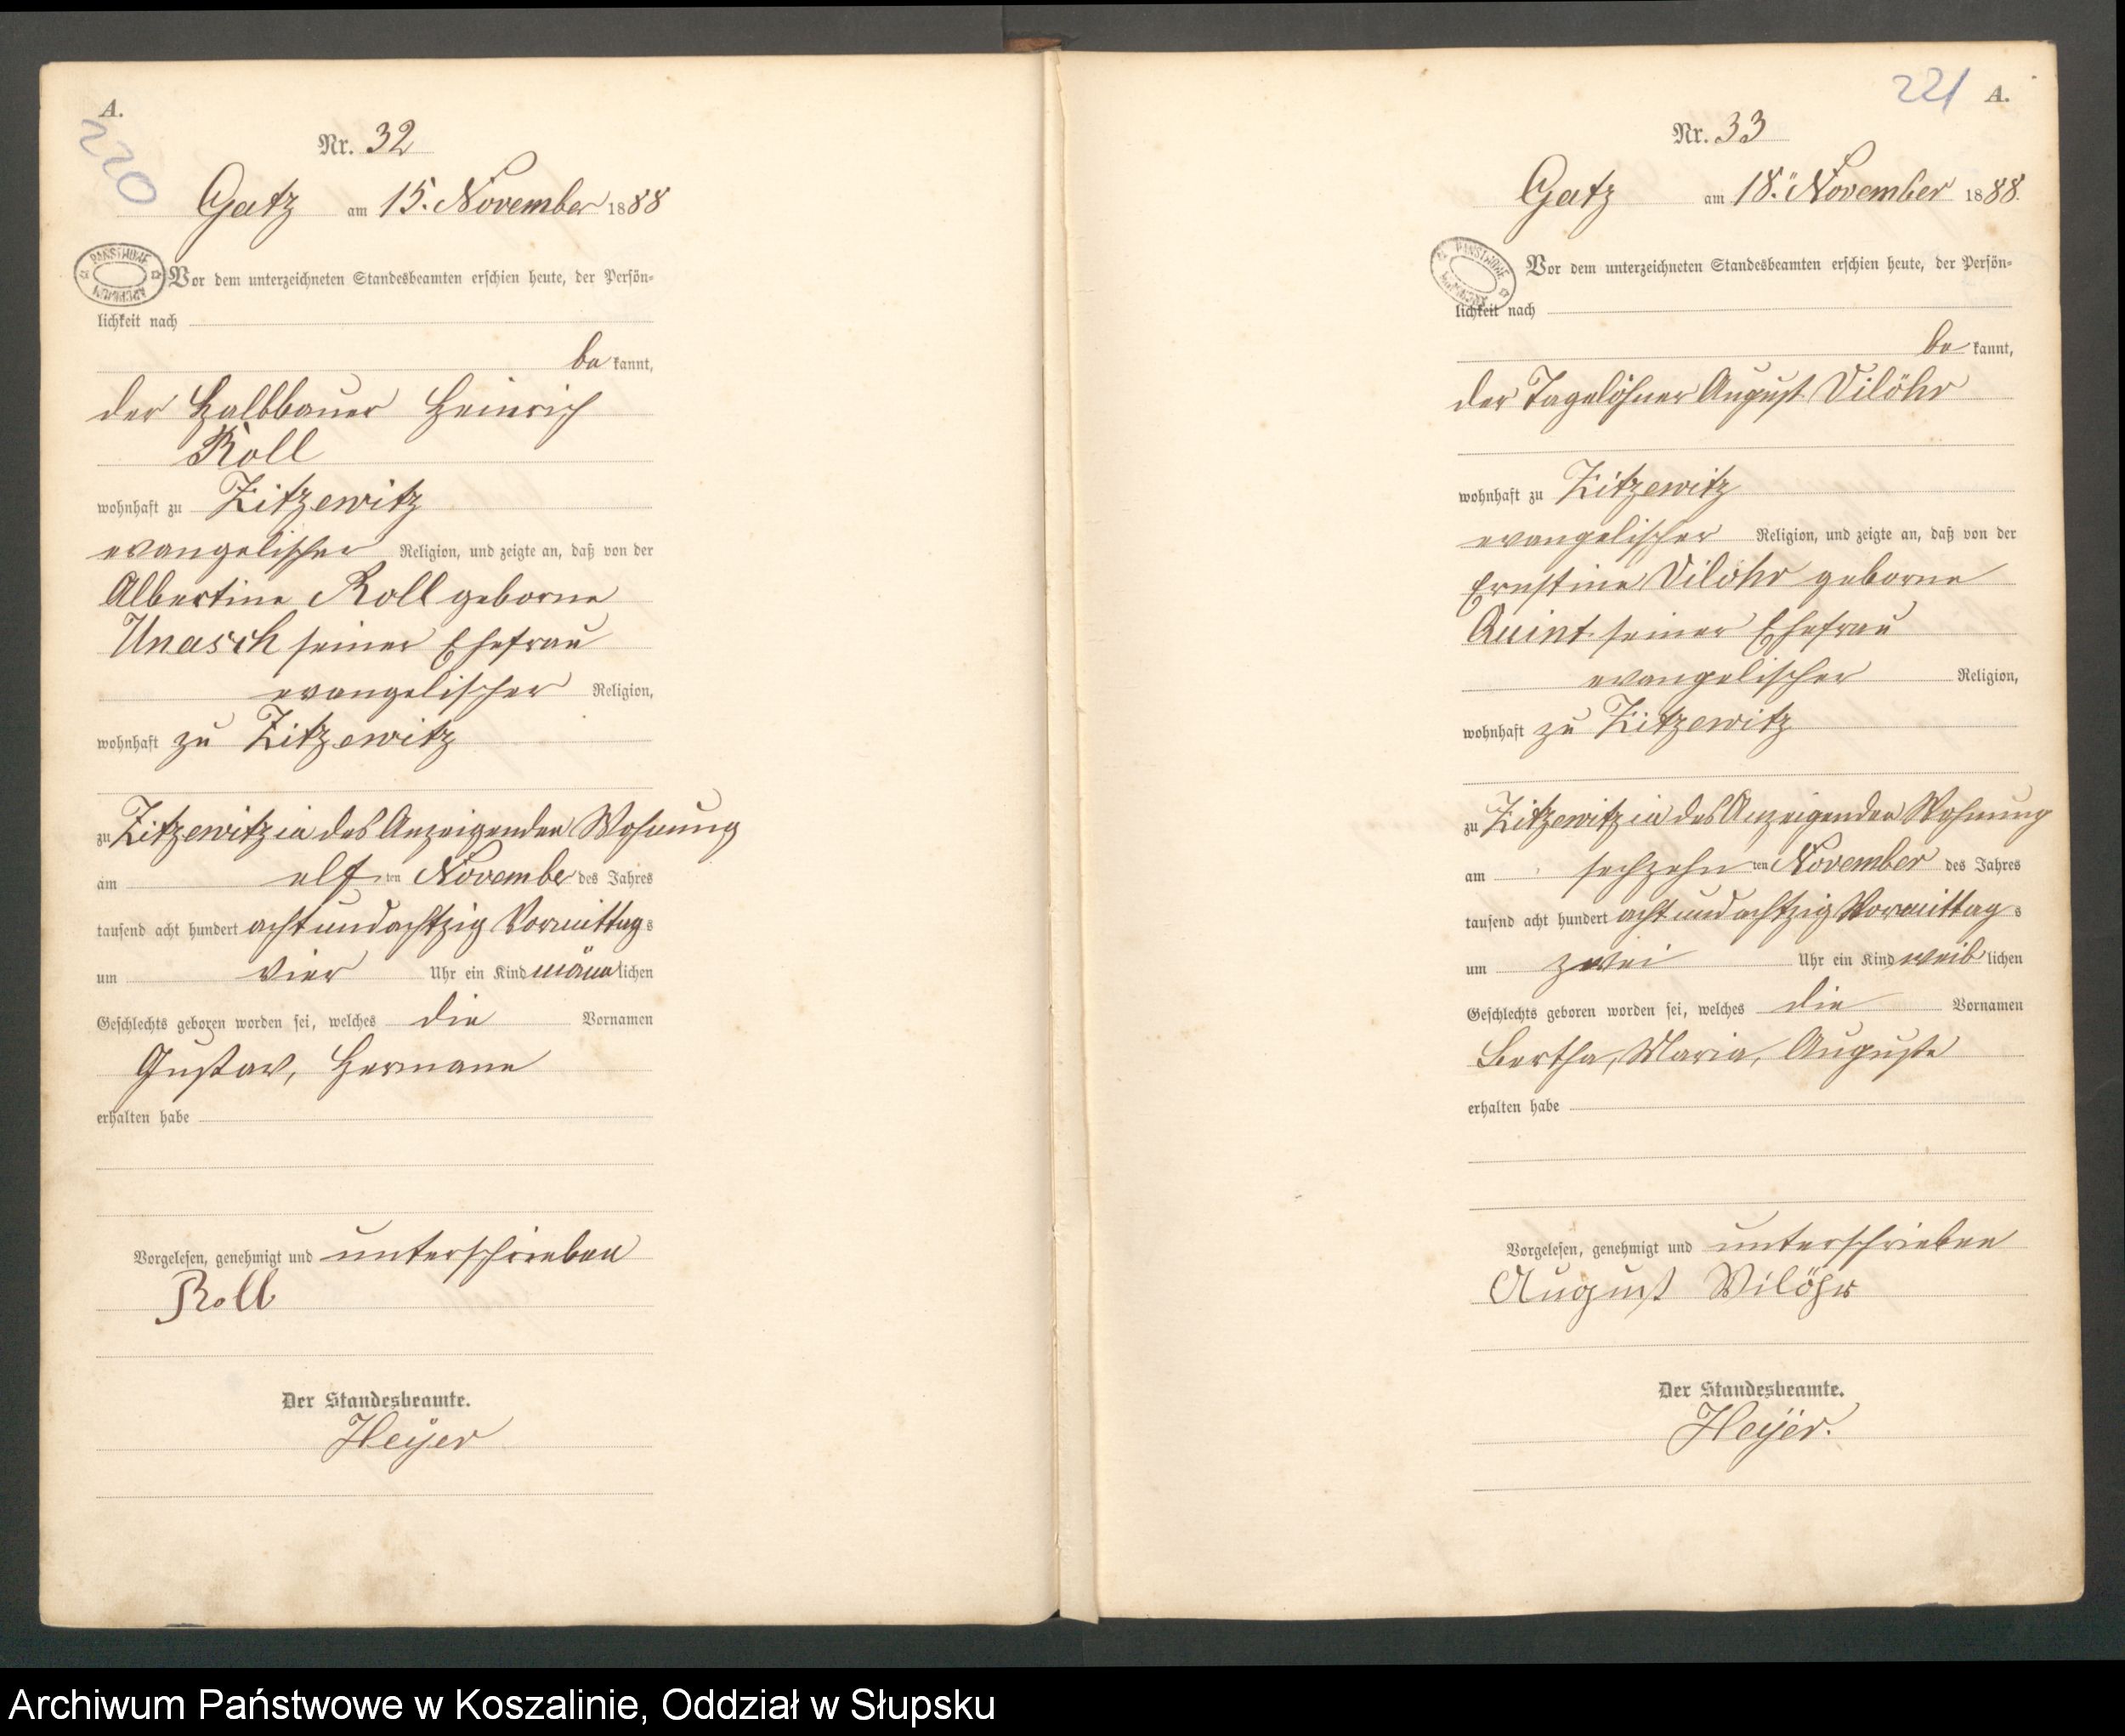 A.
220
Nr. 32
Gatz am 15. November 1888
PAŃSTWOWE
ARCHIWUM
Vor dem unterzeichneten Standesbeamten erschien heute, der Persön-
lichkeit nach
be kannt,
der Halbbauer Heinrich
Roll
wohnhaft zu Zitzewitz
evangelischer Religion, und zeigte an, daß von der
Albertine Roll geborne
Unasch seiner Ehefrau
evangelischer Religion,
wohnhaft zu Zitzewitz
zu Zitzewitz in des Anzeigenden Wohnung
am elf ten November des Jahres
tausend acht hundert acht und achtzig Vormittag s
um vier Uhr ein Kind männ lichen
Geschlechts geboren worden sei, welches die Vornamen
Gustav, Hermann
erhalten habe
Vorgelesen, genehmigt und unterschrieben
Roll
Der Standesbeamte.
Heyer
221 A.
Nr. 33
Gatz am 18. November 1888.
PAŃSTWOWE
ARCHIWUM
Vor dem unterzeichneten Standesbeamten erschien heute, der Persön-
lichkeit nach
be kannt,
der Tagelöhner August Vilöhr
wohnhaft zu Zitzewitz
evangelischer Religion, und zeigte an, daß von der
Ernstine Vilöhr geborne
Quint seiner Ehefrau
evangelischer Religion,
wohnhaft zu Zitzewitz
zu Zitzewitz in des Anzeigenden Wohnung
am sechzehn ten November des Jahres
tausend acht hundert acht und achtzig Vormittag s
um zwei Uhr ein Kind weib lichen
Geschlechts geboren worden sei, welches die Vornamen
Bertha, Maria, Auguste
erhalten habe
Vorgelesen, genehmigt und unterschrieben
August Vilöhr
Der Standesbeamte.
Heyer.
Archiwum Państwowe w Koszalinie, Oddział w Słupsku